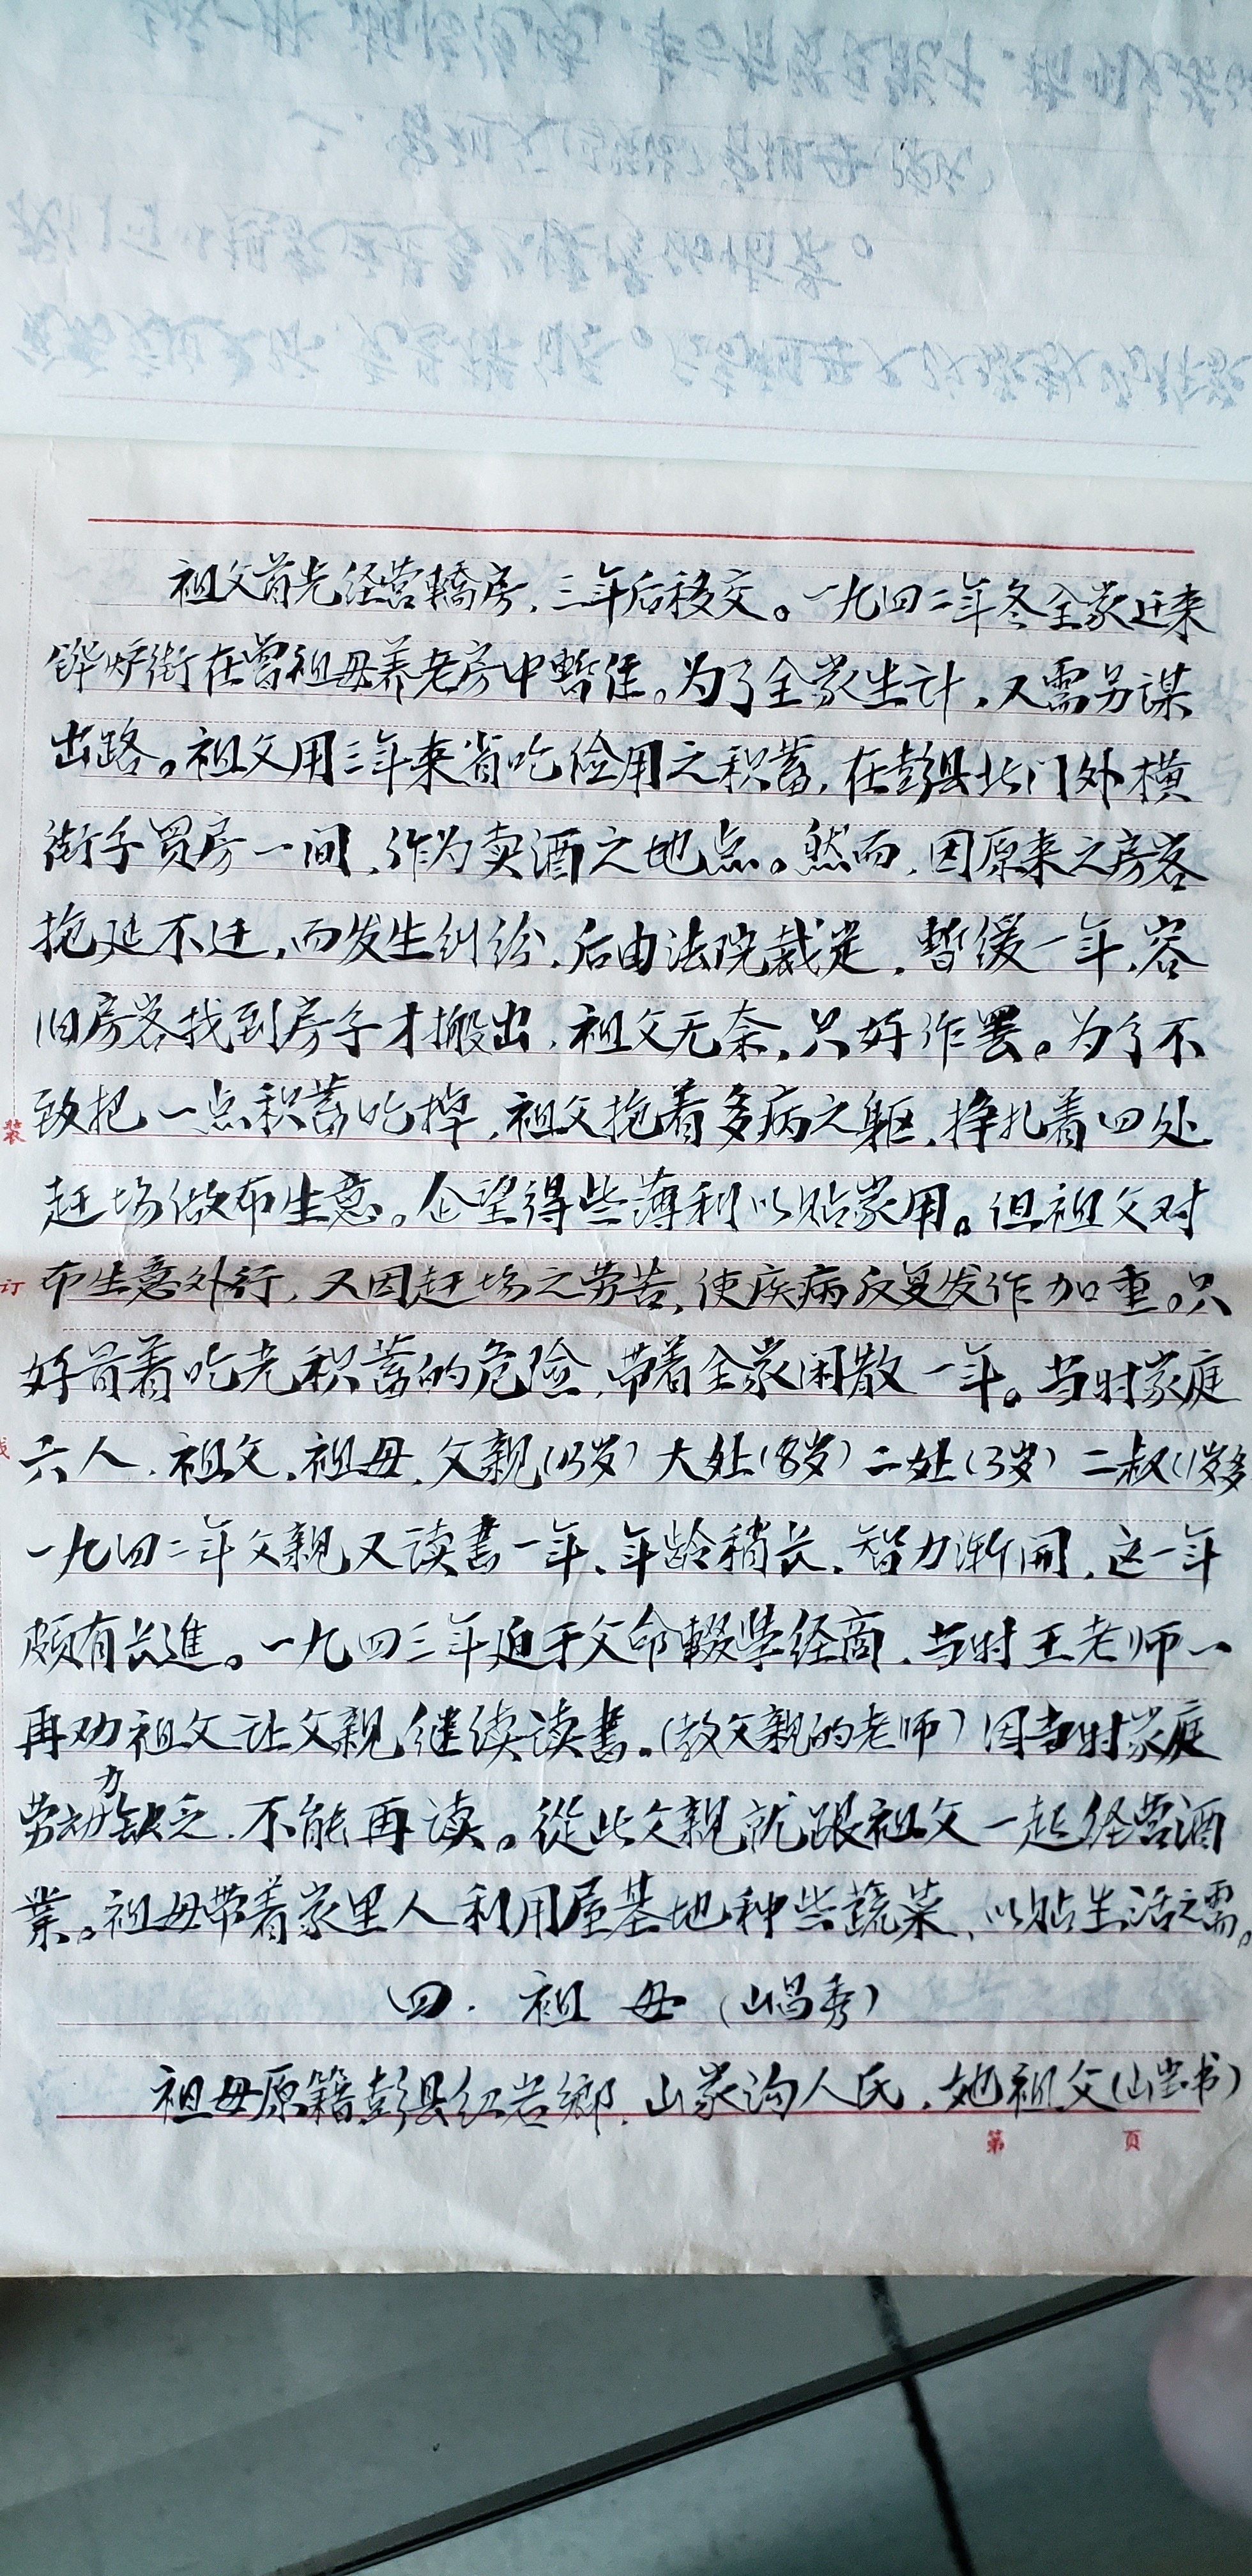 祖父首先经营轎房，三年后移交。一九四二年冬全家迁来
铧炉街在曾祖母养老房中暂住。为了全家生计，又需另谋
出路。祖父用三年来省吃俭用之积蓄，在彭县北门外横
街子買房一间，作为卖酒之地点。然而，因原来之房客
拖延不迁，而发生纠纷，后由法院裁定，暂缓一年，容
旧房客找到房子才搬出，祖父无奈，只好作罢。为了不
致把一点积蓄吃掉，祖父拖着多病之躯，挣扎着四处
赶场做布生意。企望得些薄利以贴家用。但祖父对
布生意外行，又因赶场之劳苦，使疾病反复发作加重。只
好冒着吃光积蓄的危险，带着全家闲散一年。当时家庭
六人，祖父、祖母、父親(13岁)大处(8岁)二处(3岁)二叔(1岁多
一九四二年父親又读書一年、年龄稍长，智力渐開，这一年
颇有长進。一九四三年迫于父命輟學经商，当时王老师一
再劝祖父让父親继续读書。(教父親的老师)因当时家庭
劳动力缺乏，不能再读。從此父親就跟祖父一起经营酒
業。祖母带着家里人利用屋基地种些蔬菜、以贴生活之需。
四．祖母(山昌秀)
祖母原籍彭县红岩鄉，山家沟人氏，她祖父(山 书)
装
订
第 页